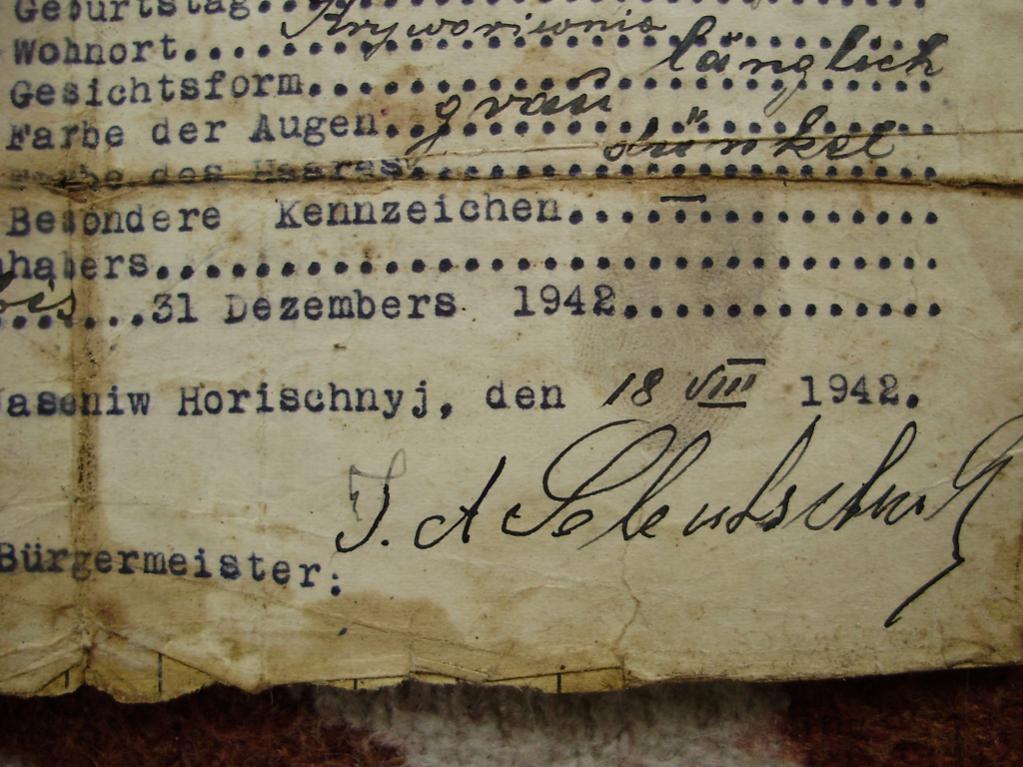 Geburtstag..
Wohnort....Kryworiwnia
Gesichtsform....länglich
Farbe der Augen..grau
Farbe des Haares....dunkel
Besondere Kennzeichen....—....
nhabers....
bis....31 Dezembers 1942....
Jaseniw Horischnyj, den 18 VIII 1942.
I. A
Bürgermeister: